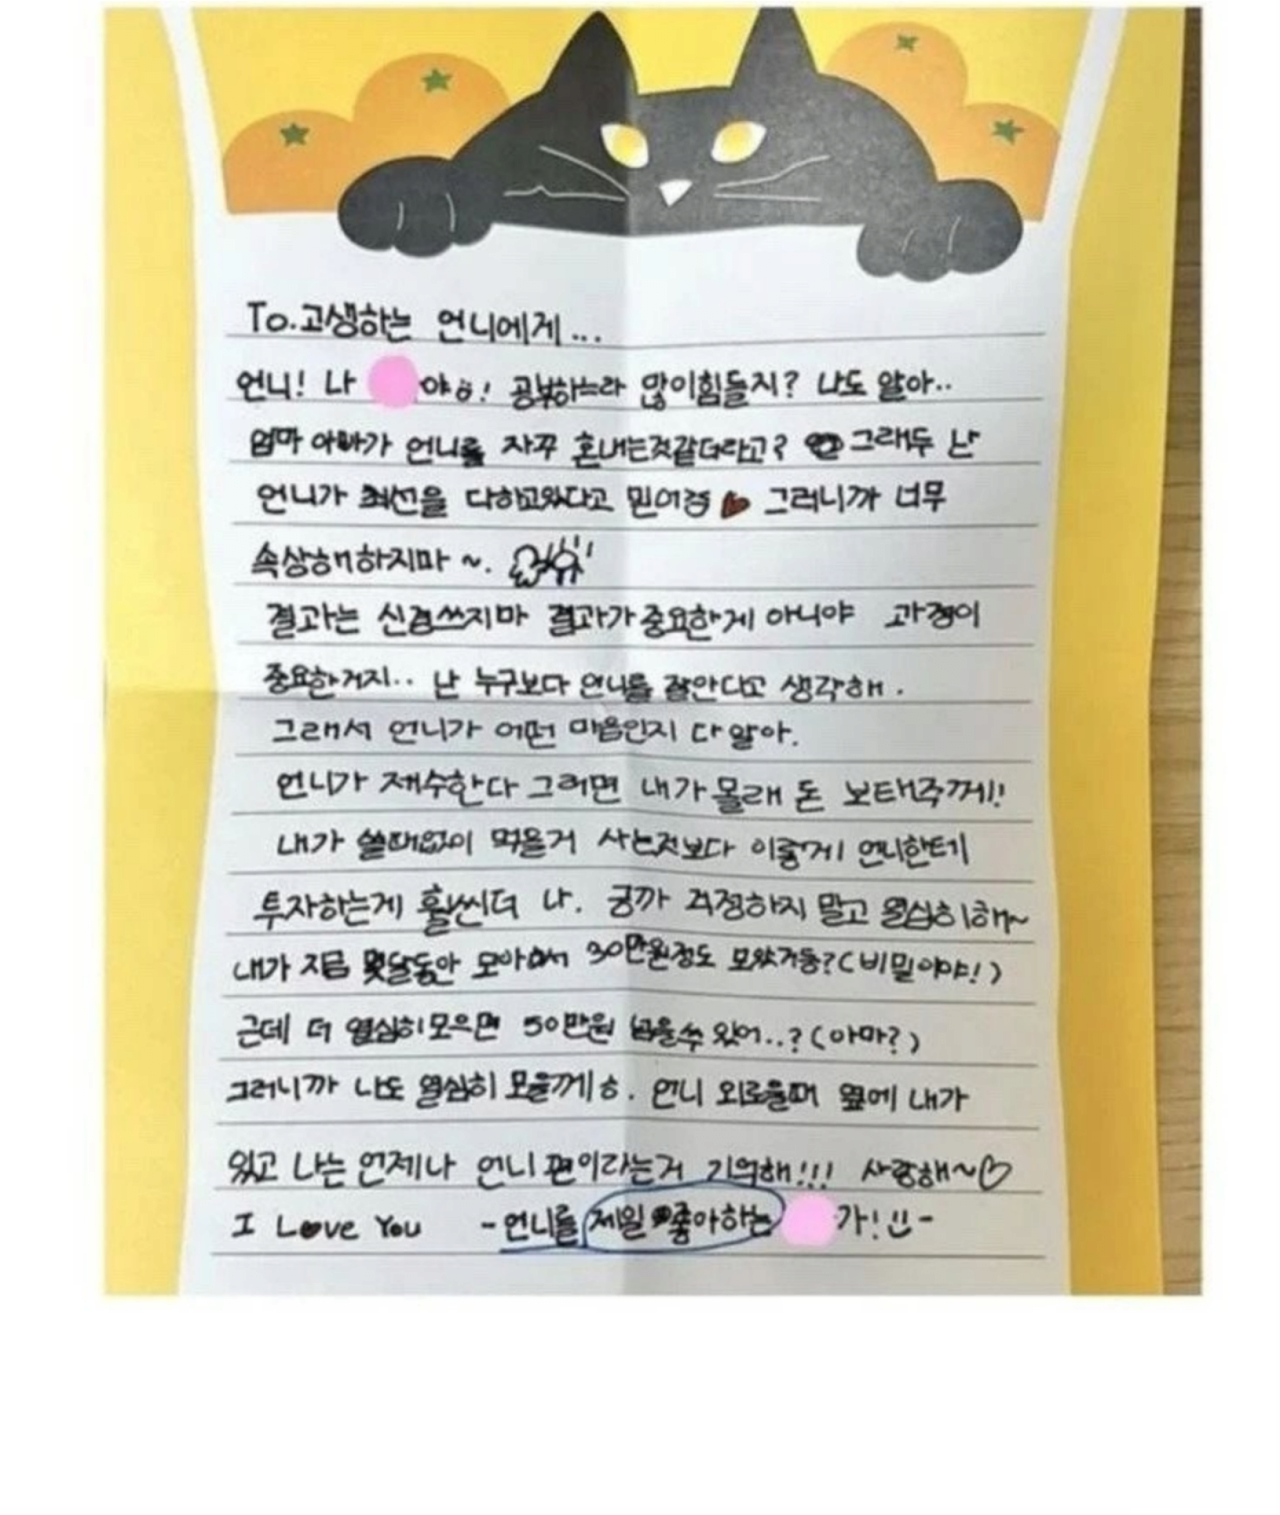 To.고생하는 언니에게...
언니! 나 야ㅎ! 공부하느라 많이힘들지? 나도 알아..
엄마 아빠가 언니를 자꾸 혼내는것같더라고? 그래두 난
언니가 최선을 다하고있다고 믿어경 그러니까 너무
속상해하지마~.
결과는 신경쓰지마 결과가 중요한게 아니야 과정이
중요한거지.. 난 누구보다 언니를 잘안다고 생각해.
그래서 언니가 어떤 마음인지 다 알아.
언니가 재수한다 그러면 내가 몰래 돈 보태주께!!
내가 쓸때없이 먹을거 사는것보다 이렇게 언니한테
투자하는게 훨씬더 나. 궁까 걱정하지 말고 열심히해~
내가 지금 몇달동안 모아서 30만원정도 모았거등?(비밀이야!)
근데 더 열심히모으면 50만원 넘을쑤 있어..?(아마?)
그러니까 나도 열심히 모을께ㅎ. 언니 외로울때 옆에 내가
있고 나는 언제나 언니 편이라는거 기억해!!! 사랑해~♡
I Love You -언니를 제일 좋아하는 가! -